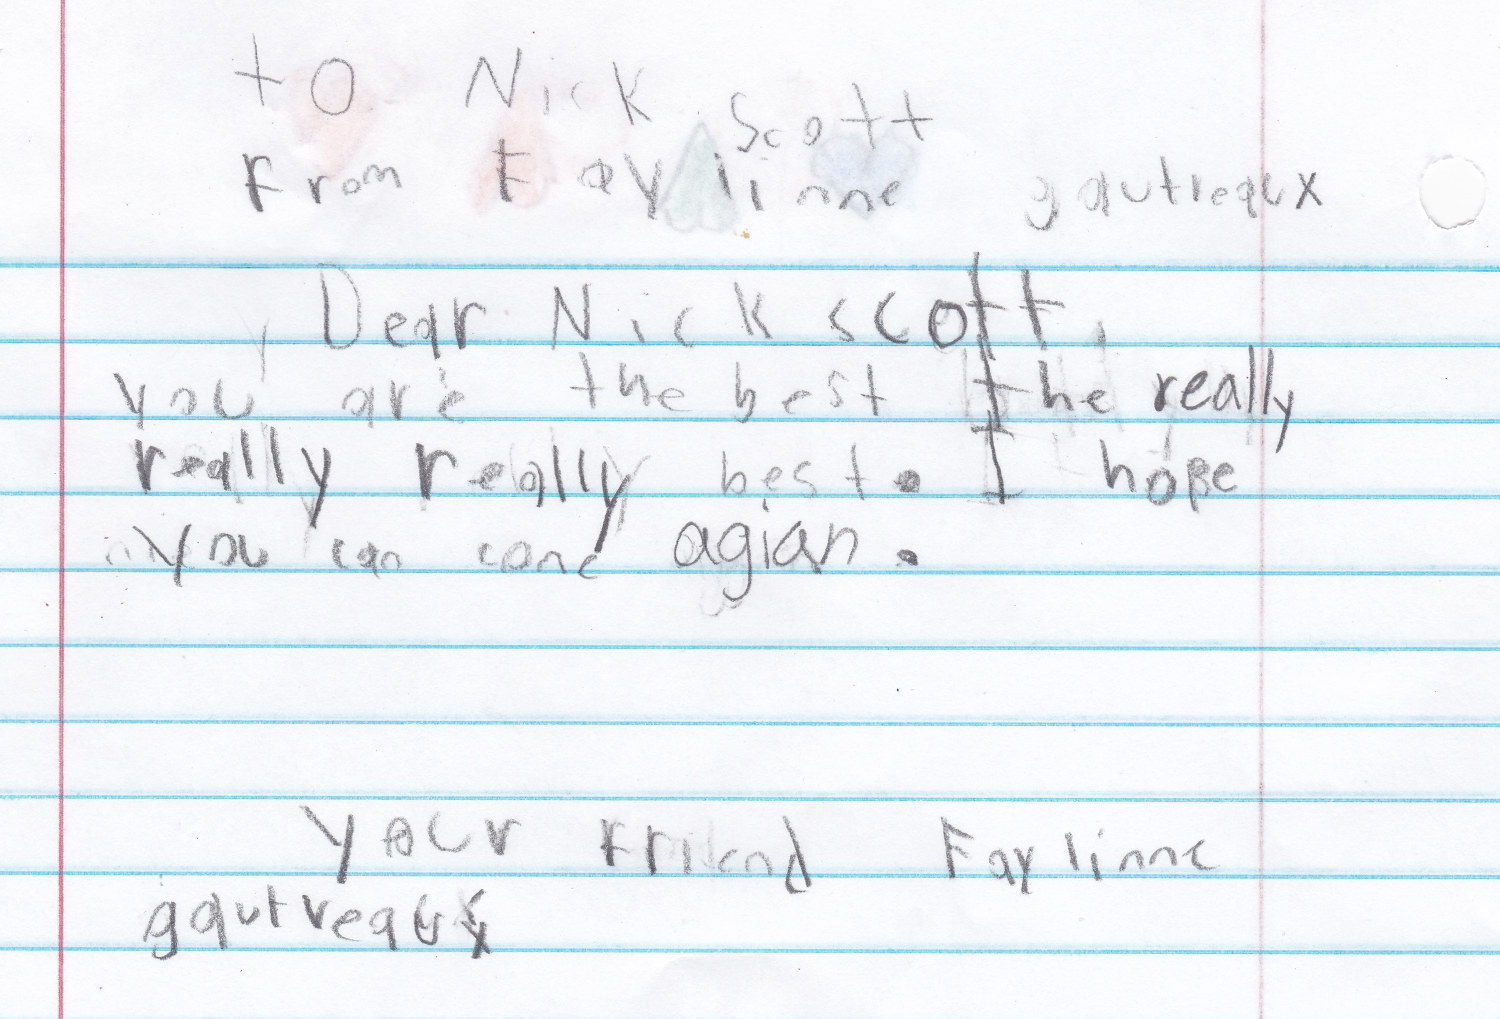 to Nick Scott
From Faylinne gautreaux
Dear Nick scott,
you are the best the really
really really best. I hope
you can come agian.
your Friend Faylinne
gautreaux